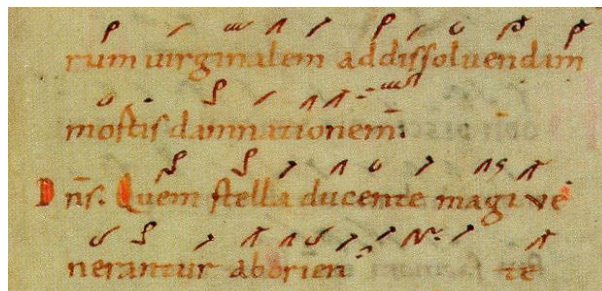 rum uirginalem addissoluendam
mostis damnationem.
Dn̄s. Quem stella ducente magi ve
nerantur aborien te